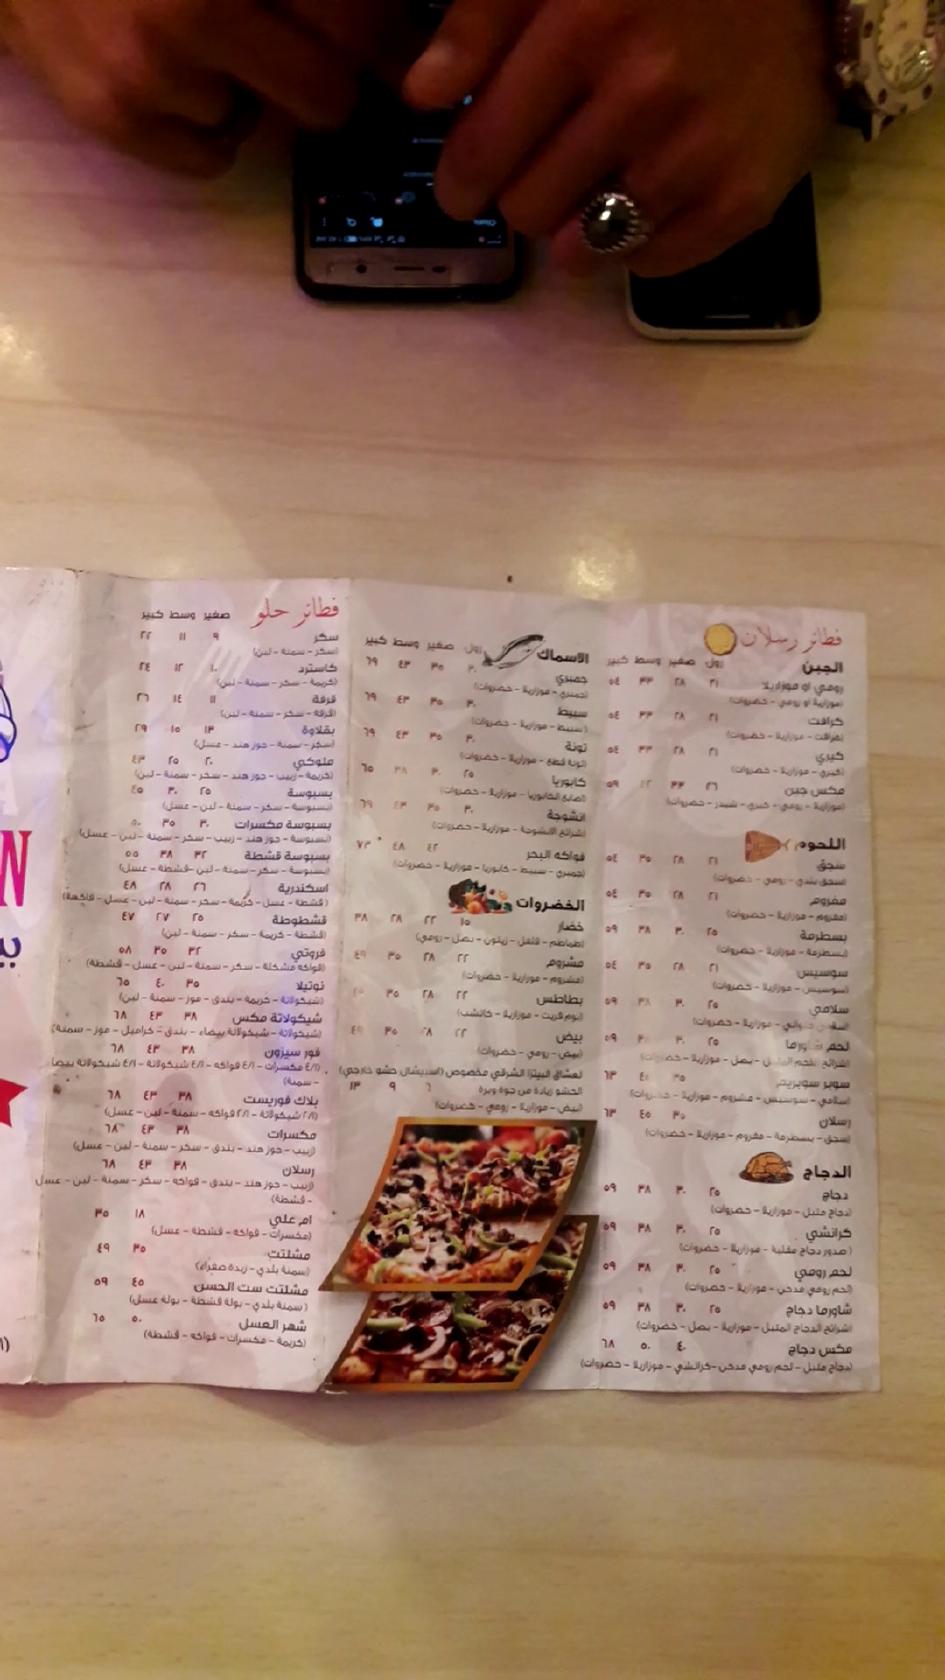 فطائر رسلان
الجبن رول صغير وسط كبير
رومي او موزاريلا ٢١ ٢٨ ٣٣ ٥٤
(موزاريلا او رومي - خضروات)
كرافت ٢١ ٢٨ ٣٣ ٥٤
(كرافت - موزاريلا - خضروات)
كيري ٢١ ٢٨ ٣٣ ٥٤
(كيري - موزاريلا - خضروات)
مكس جبن ٢٦ ٣٣ ٤٢ ٥٩
(موزاريلا - رومي - كيري - شيدر - خضروات)
اللحوم
سجق ٢١ ٢٨ ٣٥ ٥٤
(سجق بلدي - رومي - خضروات)
مفروم ٢١ ٢٨ ٣٥ ٥٤
(مفروم - موزاريلا - خضروات)
بسطرمة ٢٥ ٣٠ ٣٨ ٥٩
(بسطرمة - موزاريلا - خضروات)
سوسيس ٢١ ٢٨ ٣٥ ٥٤
(سوسيس - موزاريلا - خضروات)
سلامي ٢٥ ٣٠ ٣٨ ٥٩
(سلامي - موزاريلا - خضروات)
لحم شاورما ٢٥ ٣٠ ٣٨ ٥٩
(شرائح اللحم المتبل - بصل - موزاريلا - خضروات)
سوبر سوبريم ٣٥ ٤٥ ٦٣
(سلامي - سوسيس - مشروم - موزاريلا - خضروات)
رسلان ٣٥ ٤٥ ٦٣
(سجق - بسطرمة - مفروم - موزاريلا - خضروات)
الدجاج
دجاج ٢٥ ٣٠ ٣٨ ٥٩
(دجاج متبل - موزاريلا - خضروات)
كرانشي ٢٥ ٣٠ ٣٨ ٥٩
(صدور دجاج مقلية - موزاريلا - خضروات)
لحم رومي ٢٥ ٣٠ ٣٨ ٥٩
(لحم رومي مدخن - موزاريلا - خضروات)
شاورما دجاج ٢٥ ٣٠ ٣٨ ٥٩
(شرائح الدجاج المتبل - موزاريلا - بصل - خضروات)
مكس دجاج ٤٠ ٥٠ ٦٨
(دجاج متبل - لحم رومي مدخن - كرانشي - موزاريلا - خضروات)
الاسماك رول صغير وسط كبير
جمبري ٣٠ ٣٥ ٤٣ ٦٩
(جمبري - موزاريلا - خضروات)
سبيط ٣٠ ٣٥ ٤٣ ٦٩
(سبيط - موزاريلا - خضروات)
تونة ٣٠ ٣٥ ٤٣ ٦٩
(تونة قطع - موزاريلا - خضروات)
كابوريا ٢٥ ٣٠ ٣٨ ٦٥
(صابع الكابوريا - موزاريلا - خضروات)
انشوجة ٣٠ ٣٥ ٤٣ ٦٩
(شرائح الانشوجة - موزاريلا - خضروات)
فواكه البحر ٤٢ ٤٨ ٧٣
(جمبري - سبيط - كابوريا - موزاريلا - خضروات)
الخضروات
خضار ١٥ ٢٢ ٢٨ ٣٨
(طماطم - فلفل - زيتون - بصل - رومي)
مشروم ٢٢ ٢٨ ٣٥ ٤٩
(مشروم - موزاريلا - خضروات)
بطاطس ٢٢ ٢٨ ٣٥
(بوم فريت - موزاريلا - كاتشب)
بيض ٢٢ ٢٨ ٣٥ ٤٩
(بيض - رومي - خضروات)
لعشاق البيتزا الشرقي مخصوص (اسبيشال حشو خارجي)
الحشو زيادة من جوة وبرة ٦ ٩ ١٣
(بيض - موزاريلا - رومي - خضروات)
فطائر حلو صغير وسط كبير
سكر ٩ ١١ ٢٢
(سكر - سمنة - لبن)
كاسترد ١٠ ١٢ ٢٤
(كريمة - سكر - سمنة - لبن)
قرفة ١١ ١٤ ٢٦
(قرفة - سكر - سمنة - لبن)
بقلاوة ١٣ ١٥ ٢٩
(سكر - سمنة - جوز هند - عسل)
ملوكي ٢٠ ٢٥ ٤٣
(كريمة - زبيب - جوز هند - سكر - سمنة - لبن)
بسبوسة ٢٥ ٣٠ ٤٥
(بسبوسة - سكر - سمنة - لبن - عسل)
بسبوسة مكسرات ٣٠ ٣٥ ٥٠
(بسبوسة - جوز هند - زبيب - سكر - سمنة - لبن - عسل)
بسبوسة قشطة ٣٢ ٣٨ ٥٥
(بسبوسة - سكر - سمنة - لبن - قشطة - عسل)
اسكندرية ٢٦ ٢٨ ٤٨
(قشطة - عسل - كريمة - سكر - سمنة - لبن - عسل - فاكهة)
قشطوطة ٢٥ ٢٧ ٤٧
(قشطة - كريمة - سكر - سمنة - لبن)
فروتي ٣٢ ٣٥ ٥٨
(فواكه مشكلة - سكر - سمنة - لبن - عسل - قشطة)
نوتيلا ٣٥ ٤٠ ٦٥
(شيكولاتة - كريمة - بندق - موز - سمنة - لبن)
شيكولاتة مكس ٣٨ ٤٣ ٦٨
(شيكولاتة - شيكولاتة بيضاء - بندق - كراميل - موز - سمنة)
فور سيزون ٣٨ ٤٣ ٦٨
(٤/١ مكسرات - ٤/١ فواكه - ٤/١ شيكولاتة - ٤/١ شيكولاتة بيضا
- سمنة)
بلاك فوريست ٣٨ ٤٣ ٦٨
(٢/١ شيكولاتة - ٢/١ فواكه - سمنة - لبن - عسل)
مكسرات ٣٨ ٤٣ ٦٨
(زبيب - جوز هند - بندق - سكر - سمنة - لبن - عسل)
رسلان ٣٨ ٤٣ ٦٨
(زبيب - جوز هند - بندق - فواكه - سكر - سمنة - لبن - عسل
- قشطة)
ام علي ١٨ ٣٥
(مكسرات - فواكه - قشطة - عسل)
مشلتت ٣٥ ٤٩
(سمنة بلدي - زبدة صفراء)
مشلتت ست الحسن ٤٥ ٥٩
(سمنة بلدي - بولة قشطة - بولة عسل)
شهر العسل ٥٠ ٦٥
(كريمة - مكسرات - فواكه - قشطة)